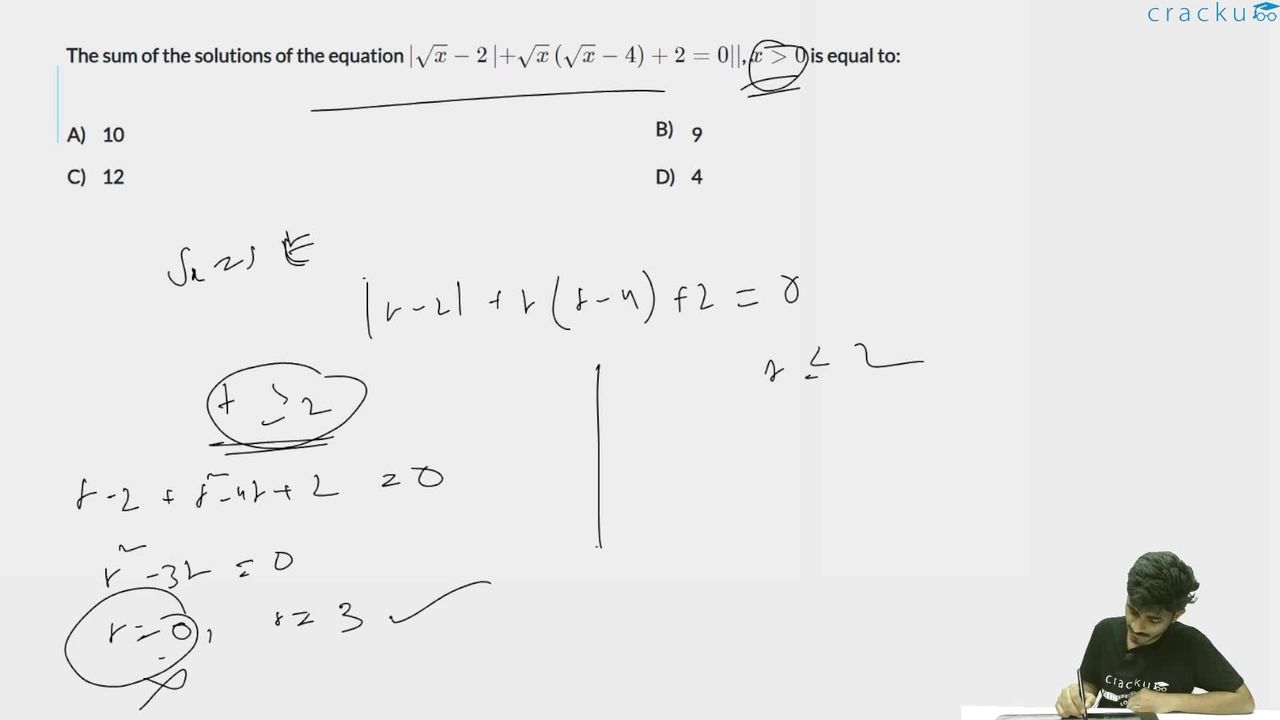 cracku
The sum of the solutions of the equation |√x − 2|+√x (√x − 4) + 2 = 0||, x > 0 is equal to:
A) 10
B) 9
C) 12
D) 4
√x = t
|t-2| + t(t-4) +2 = 0
t ≥ 2
t ≤ 2
t-2 + t²-4t+2 = 0
t²-3t = 0
t=0, t= 3
cracku